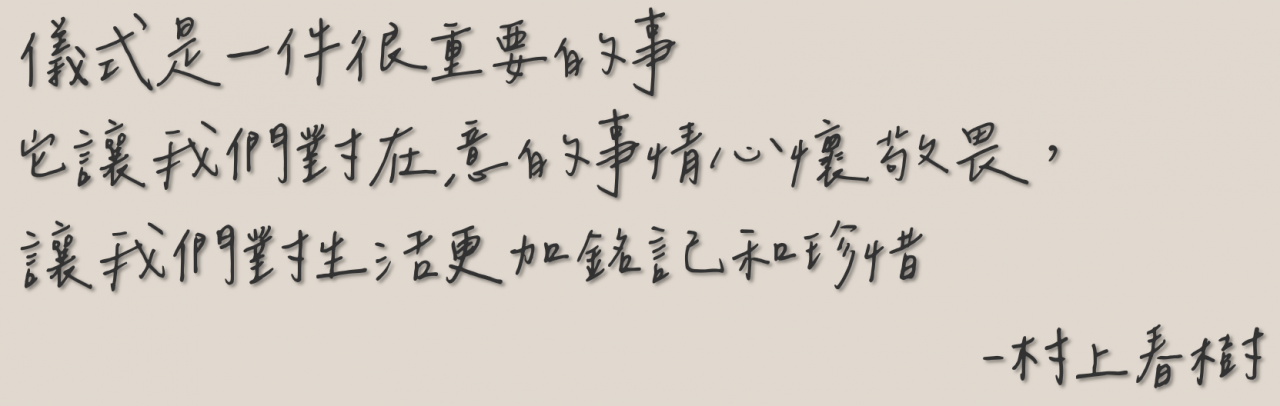 儀式是一件很重要的事
它讓我們對在意的事情心懷敬畏，
讓我們對生活更加銘記和珍惜
-村上春樹